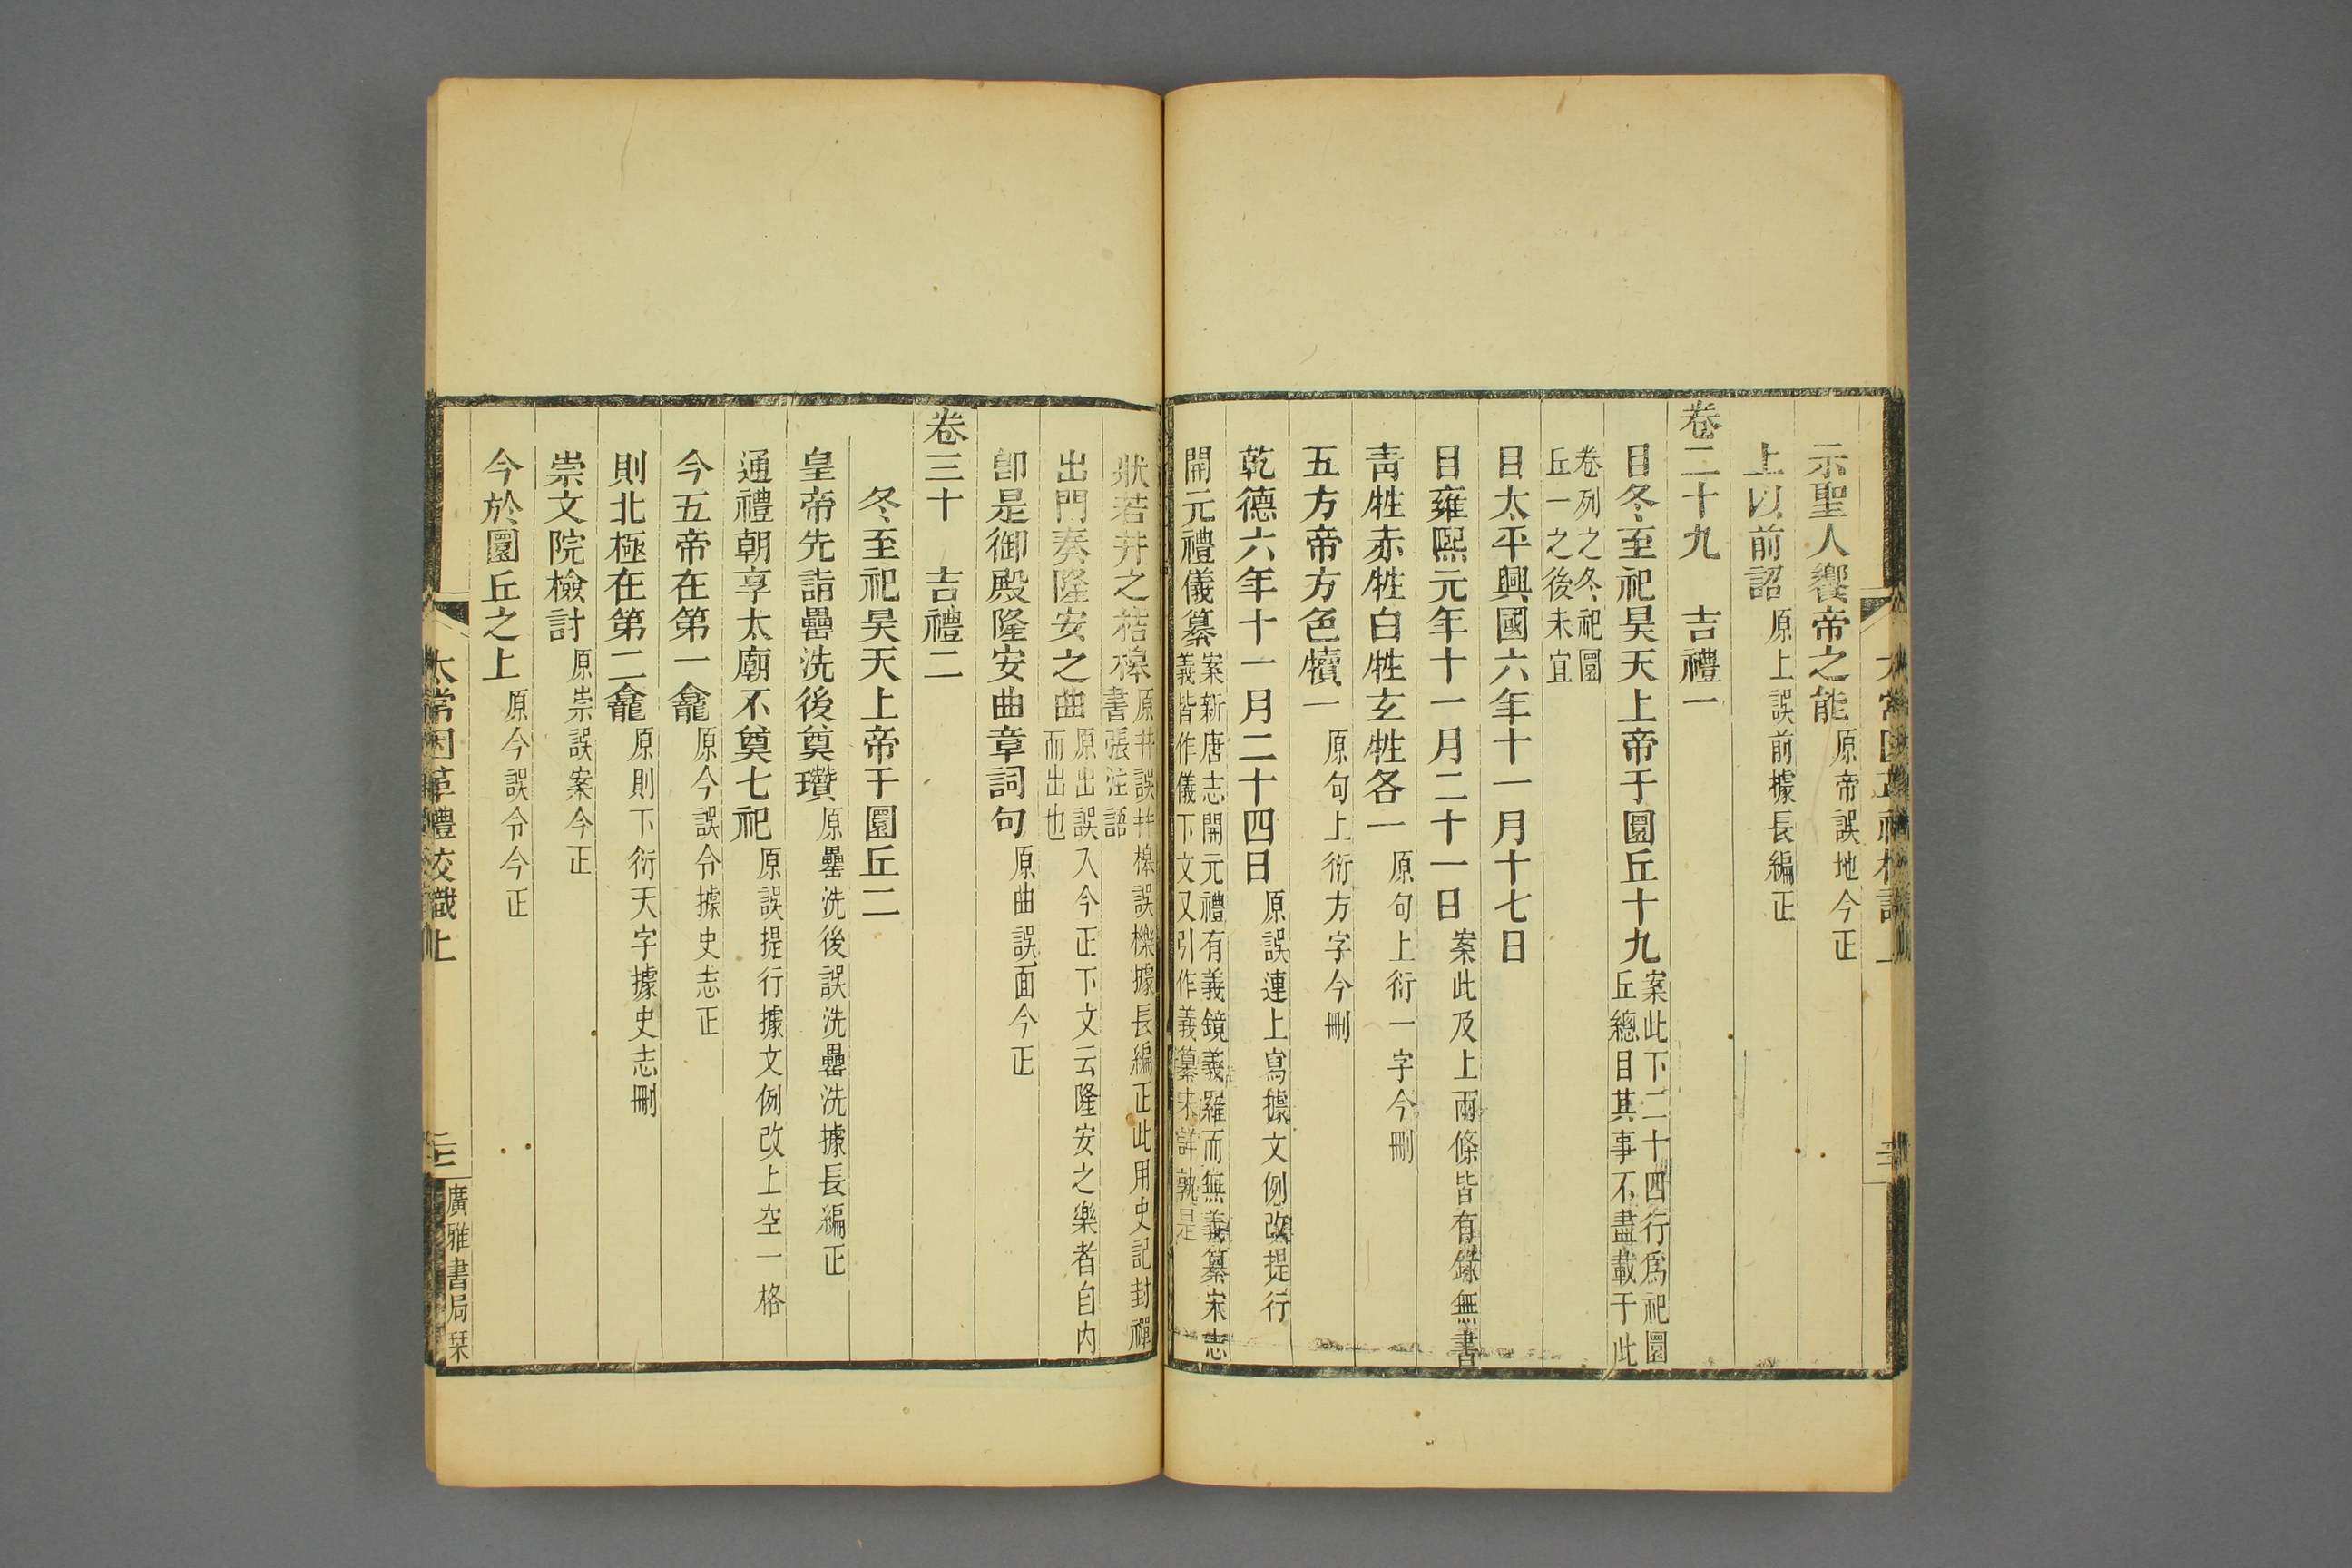 示聖人饗帝之能原帝誤地今正
上以前詔原上誤前據長編正
卷二十九　吉禮一
目冬至祀昊天上帝于圜丘十九案此下二十四行爲祀圜丘總目其事不盡載于此
卷列之冬祀圜丘一之後未宜
目太平興國六年十一月十七日
目雍熙元年十一月二十一日案此及上兩條皆有錄無書
青牲赤牲白牲玄牲各一原句上衍一字今刪
五方帝方色犢一原句上衍方字今刪
乾德六年十一月二十四日原誤連上寫據文例改提行
開元禮儀纂案新唐志開元禮有義鏡義羅而無義纂宋志義皆作儀下文又引作義纂未詳孰是
狀若井之桔槔原井誤幷槔誤櫟據長編正此用史記封禪書張注語
出門奏隆安之曲原出誤入今正下文云隆安之樂者自內而出也
卽是御殿隆安曲章詞句原曲誤面今正
卷三十　吉禮二
冬至祀昊天上帝于圜丘二
皇帝先詣罍洗後奠瓚原罍洗後誤洗罍洗據長編正
通禮朝享太廟不奠七祀原誤提行據文例改上空一格
今五帝在第一龕原今誤令據史志正
則北極在第二龕原則下衍天字據史志刪
崇文院檢討原崇誤案今正
今於圜丘之上原今誤令今正
太常因革禮校識上
廣雅書局栞